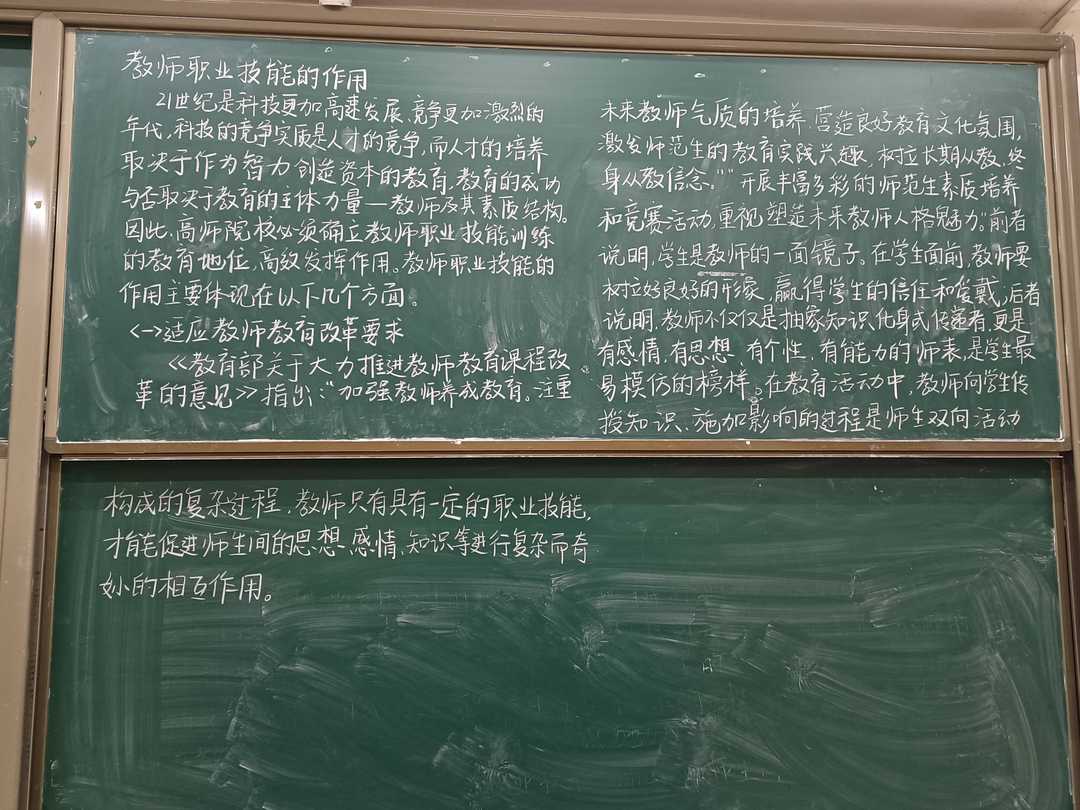 教师职业技能的作用
21世纪是科技更加高速发展、竞争更加激烈的
年代,科技的竞争实质是人才的竞争,而人才的培养
取决于作为智力创造资本的教育,教育的成功
与否取决于教育的主体力量—教师及其素质结构。
因此,高师院校必须确立教师职业技能训练
的教育地位,高级发挥作用。教师职业技能的
作用主要体现在以下几个方面。
<一>适应教师教育改革要求
《教育部关于大力推进教师教育课程改
革的意见》指出:“加强教师养成教育。注重
未来教师气质的培养,营造良好教育文化氛围,
激发师范生的教育实践兴趣,树立长期从教、终
身从教信念。”“开展丰富多彩的师范生素质培养
和竞赛活动,重视塑造未来教师人格魅力。”前者
说明,学生是教师的一面镜子。在学生面前,教师要
树立好良好的形象,赢得学生的信任和爱戴;后者
说明,教师不仅仅是抽象知识化身式传递者,更是
有感情、有思想、有个性、有能力的师表,是学生最
易模仿的榜样。在教育活动中,教师向学生传
授知识、施加影响的过程是师生双向活动
构成的复杂过程,教师只有具有一定的职业技能,
才能促进师生间的思想、感情、知识等进行复杂而奇
妙的相互作用。